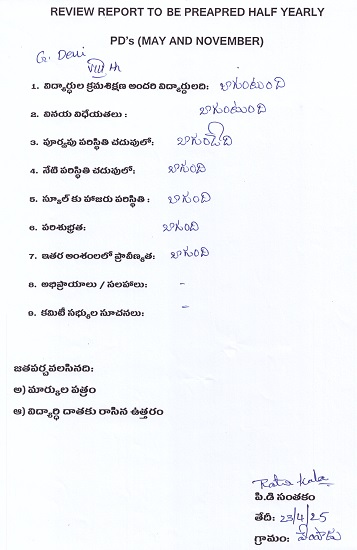 REVIEW REPORT TO BE PREAPRED HALF YEARLY
PD's (MAY AND NOVEMBER)
G. Devi
VIII th
1. విద్యార్థుల క్రమశిక్షణ అందరి విద్యార్థులది: బాగుంటుంది
2. వినయ విధేయతలు : బాగుంటుంది
3. పూర్వపు పరిస్థితి చదువులో: బాగుండేది
4. నేటి పరిస్థితి చదువులో: బాగుంది
5. స్కూల్ కు హాజరు పరిస్థితి : బాగుంది
6. పరిశుభ్రత: బాగుంది
7. ఇతర అంశంలలో ప్రావీణ్యత: బాగుంది
8. అభిప్రాయాలు / సలహాలు: -
9. కమిటీ సభ్యుల సూచనలు: -
జతపర్చవలసినది:
అ) మార్కుల పత్రం
ఆ) విద్యార్థి దాతకు రాసిన ఉత్తరం
Ratna Kala
పి.డి సంతకం
తేదీ: 23/4/25
గ్రామం: